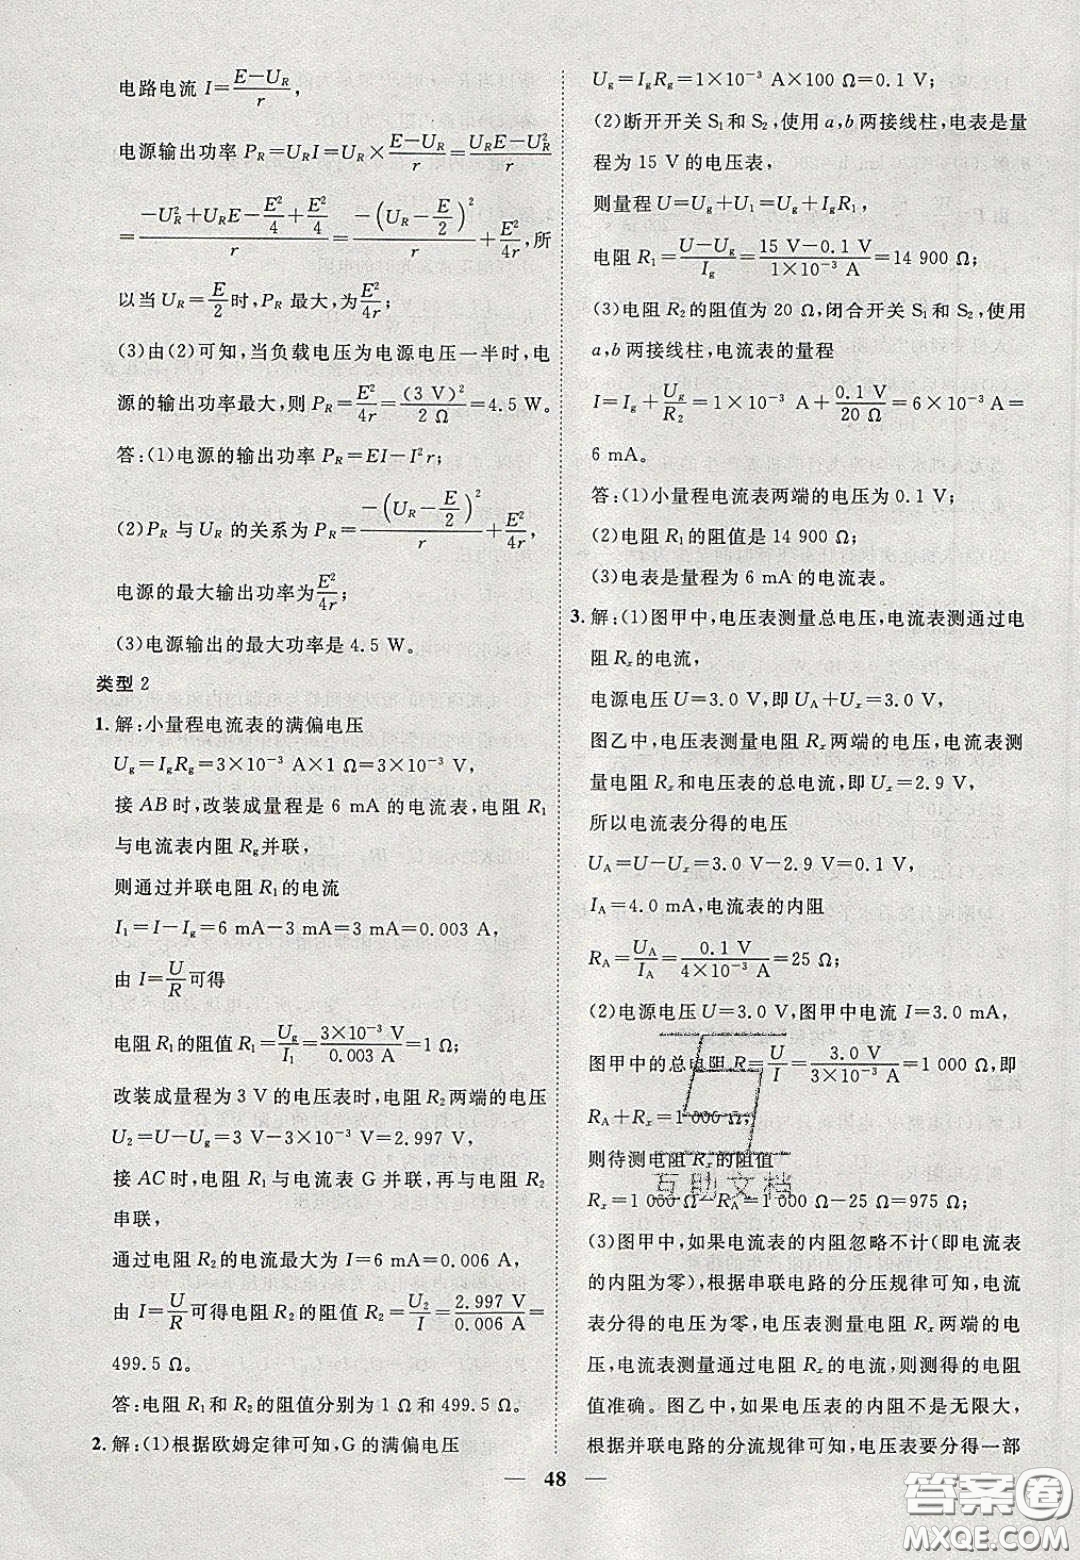 电路电流 I=(E-U_R)/r,
电源输出功率 P_R=U_RI=U_R×(E-U_R)/r=(U_RE-U_R²)/r
=(-U_R²+U_RE-E²/4+E²/4)/r=-(U_R-E/2)²/r+E²/4r,所
以当 U_R=E/2时,P_R 最大,为E²/4r;
(3)由(2)可知,当负载电压为电源电压一半时,电
源的输出功率最大,则 P_R=E²/4r=(3 V)²/2 Ω=4.5 W。
答:(1)电源的输出功率 P_R=EI-I²r;
(2)P_R 与 U_R 的关系为 P_R=-(U_R-E/2)²/r+E²/4r,
电源的最大输出功率为E²/4r;
(3)电源输出的最大功率是 4.5 W。
类型 2
1. 解:小量程电流表的满偏电压
U_g=I_gR_g=3×10⁻³ A×1 Ω=3×10⁻³ V,
接 AB 时,改装成量程是 6 mA 的电流表,电阻 R₁
与电流表内阻 R_g并联,
则通过并联电阻 R₁的电流
I₁=I-I_g=6 mA-3 mA=3 mA=0.003 A,
由 I=U/R可得
电阻 R₁的阻值 R₁=U_g/I₁=3×10⁻³ V/0.003 A=1 Ω;
改装成量程为 3 V 的电压表时,电阻 R₂两端的电压
U₂=U-U_g=3 V-3×10⁻³ V=2.997 V,
接 AC 时,电阻 R₁与电流表 G 并联,再与电阻 R₂
串联,
通过电阻 R₂的电流最大为 I=6 mA=0.006 A,
由 I=U/R可得电阻 R₂的阻值 R₂=U₂/I=2.997 V/0.006 A=
499.5 Ω。
答:电阻 R₁和 R₂的阻值分别为 1 Ω和 499.5 Ω。
2. 解:(1)根据欧姆定律可知,G 的满偏电压
U_g=I_gR_g=1×10⁻³ A×100 Ω=0.1 V;
(2)断开开关 S₁和 S₂,使用 a,b 两接线柱,电表是量
程为 15 V 的电压表,
则量程 U=U_g+U₁=U_g+I_gR₁,
电阻 R₁=(U-U_g)/I_g=(15 V-0.1 V)/(1×10⁻³ A)=14 900 Ω;
(3)电阻 R₂的阻值为 20 Ω,闭合开关 S₁和 S₂,使用
a,b 两接线柱,电流表的量程
I=I_g+U_g/R₂=1×10⁻³ A+0.1 V/20 Ω=6×10⁻³ A=
6 mA。
答:(1)小量程电流表两端的电压为 0.1 V;
(2)电阻 R₁的阻值是 14 900 Ω;
(3)电表是量程为 6 mA 的电流表。
3. 解:(1)图甲中,电压表测量总电压,电流表测通过电
阻 Rₓ的电流,
电源电压 U=3.0 V,即 U_A+Uₓ=3.0 V,
图乙中,电压表测量电阻 Rₓ 两端的电压,电流表测
量电阻 Rₓ和电压表的总电流,即 Uₓ=2.9 V,
所以电流表分得的电压
U_A=U-Uₓ=3.0 V-2.9 V=0.1 V,
I_A=4.0 mA,电流表的内阻
R_A=U_A/I_A=0.1 V/(4×10⁻³ A)=25 Ω;
(2)电源电压 U=3.0 V,图甲中电流 I=3.0 mA,
图甲中的总电阻 R=U/I=3.0 V/(3×10⁻³ A)=1 000 Ω,即
R_A+Rₓ=1 000 Ω;
则待测电阻 Rₓ的阻值
Rₓ=1 000 Ω-R_A=1 000 Ω-25 Ω=975 Ω;
(3)图甲中,如果电流表的内阻忽略不计(即电流表
的内阻为零),根据串联电路的分压规律可知,电流
表分得的电压为零,电压表测量电阻 Rₓ 两端的电
压,电流表测量通过电阻 Rₓ的电流,则测得的电阻
值准确。图乙中,如果电压表的内阻不是无限大,
根据并联电路的分流规律可知,电压表要分得一部
48
互助文档
答案圈
MXQE.COM